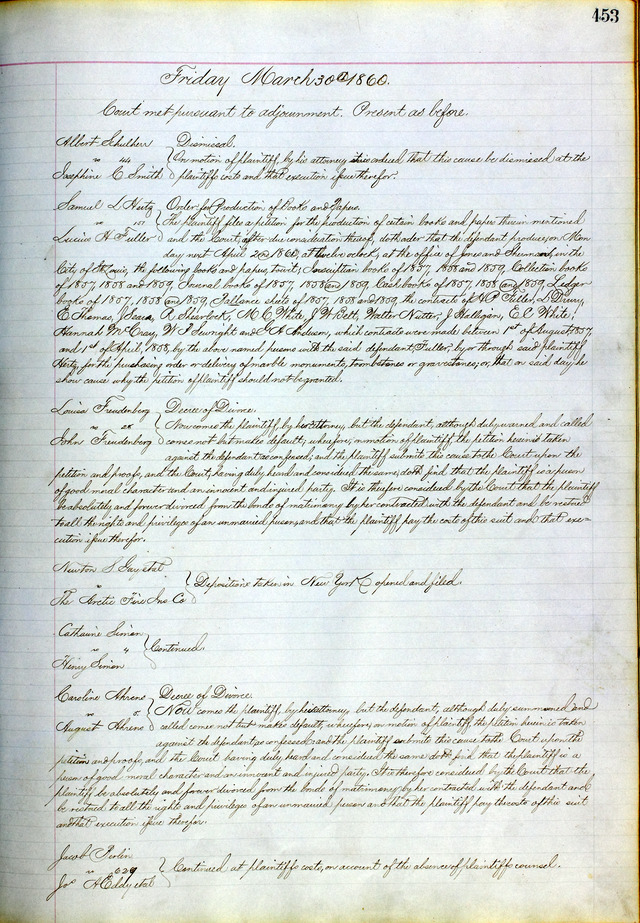 453
Friday March 30th 1860.
Court met pursuant to adjournment. Present as before.
Albert Schulherr Dismissal.
vs 44 On motion of plaintiff, by his attorney it is ordered that this cause be dismissed at the
Josephine C Smith plaintiffs costs and that execution issue therefor.
Samuel L Hertz Order for Production of Books and Papers.
vs The plaintiff files a petition for the production of certain books and papers therein mentioned
Lucius H Fuller and the Court, after due consideration thereof, doth order that the defendant produce, on Mon
day next April 2nd 1860, at twelve o'clock, at the office of Jones and Sherman, in the
City of St Louis, the following books and papers, towit; Subscription books of 1857, 1858 and 1859, Collection books
of 1857, 1858 and 1859, Journal books of 1857, 1858 and 1859, Cash books of 1857, 1858 and 1859, Ledger
books of 1857, 1858 and 1859, Ballance sheets of 1857, 1858 and 1859, the contracts of Fuller, L. Drury,
E Thomas, R Sharlock, M C White, J W Belt, Walter Nutter, J Mulligan, E C White,
Hannah McCray, W J and Anderson, which contracts were made between 1st of August 1857,
and 1st of April, 1858, by the above named persons with the said defendant, Fuller, by or through said plaintiff
Hertz, for the purchasing order or delivery of marble monuments, tombstones or gravestones; or, that on said day, he
show cause why the petition of plaintiff should not be granted.
Louisa Freudenberg Decree of Divorce.
vs Now comes the plaintiff, by her attorney, but the defendant, although duly warned and called
John Freudenberg comes not but makes default; wherefore, on motion of plaintiff, the petition herein is taken
against the defendant as confessed; and the plaintiff submits this cause to the Court upon the
petition and proofs, and the Court, having duly heard and considered the same, doth find that the plaintiff is a person
of good moral character and an innocent and injured party. It is therefore considered by the Court that the plaintiff
be absolutely and forever divorced from the bonds of matrimony by her contracted with the defendant and be restored
to all the rights and privileges of an unmarried person, and that the plaintiff pay the costs of this suit and that exe=
cution issue therefor.
Newton S
vs Depositions taken in New York opened and filed.
The Arctic Fire Ins Co
Catharine Simon
vs Continued.
Henry Simon
Caroline Ahrens Decree of Divorce.
vs 5. Now comes the plaintiff, by her attorney, but the defendant, although duly summoned and
August Ahrens called comes not but makes default; wherefore, on motion of plaintiff, the petition herein is taken
against the defendant as confessed and the plaintiff submits this cause to the Court upon the
petition and proofs, and the Court having duly heard and considered the same doth find that the plaintiff is a
person of good moral character and an innocent and injured party. It is therefore considered by the Court that the
plaintiff be absolutely and forever divorced from the bonds of matrimony by her contracted with the defendant and
be restored to all the rights and privileges of an unmarried person and that the plaintiff pay the costs of this suit
and that execution issue therefor.
Jacob
vs 629 Continued at plaintiffs costs, on account of the absence of plaintiffs counsel.
Jos A Eddy et al